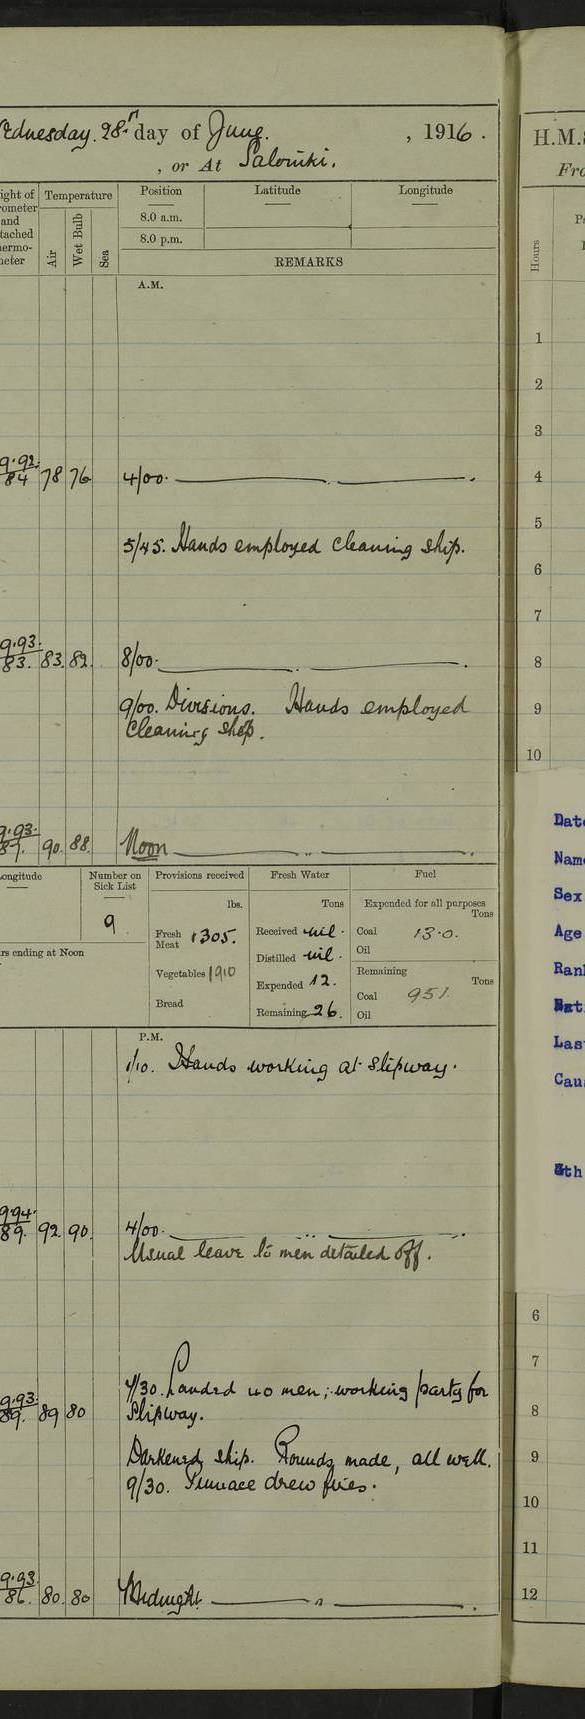 Wednesday. 28th day of June. , 1916.
, or At Salonika.
ight of rometer and tached ermo- neter
Temperature
Air Wet Bulb Sea
Position Latitude Longitude
8.0 a.m.
8.0 p.m.
REMARKS
A.M.
9.92. 84 78 76 4/00.
5/45. Hands employed cleaning ship.
9.93. 83. 83. 82. 8/00.
9/00. Divisions. Hands employed
cleaning ship.
9.93. 90. 88. Noon
ongitude
Number on Sick List
9
rs ending at Noon
Provisions received
lbs.
Fresh Meat 1305.
Vegetables 1910
Bread
Fresh Water
Tons
Received nil.
Distilled nil.
Expended 12.
Remaining 26.
Fuel
Expended for all purposes
Tons
Coal 13.0.
Oil
Remaining
Tons
Coal 951.
Oil
P.M.
1/10. Hands working at slipway.
994. 89. 92. 90. 4/00.
Usual leave to men detailed off.
7/30. Landed 40 men; working party for
Slipway.
9.93. 89. 89 80
Darkened ship. Rounds made, all well.
9/30. Furnace drew fires.
9.93. 86. 80. 80 Midnight
H.M.S
Fro
Hours
1
2
3
4
5
6
7
8
9
10
Date
Name
Sex
Age
Rank
Last
Caus
6
7
8
9
10
11
12